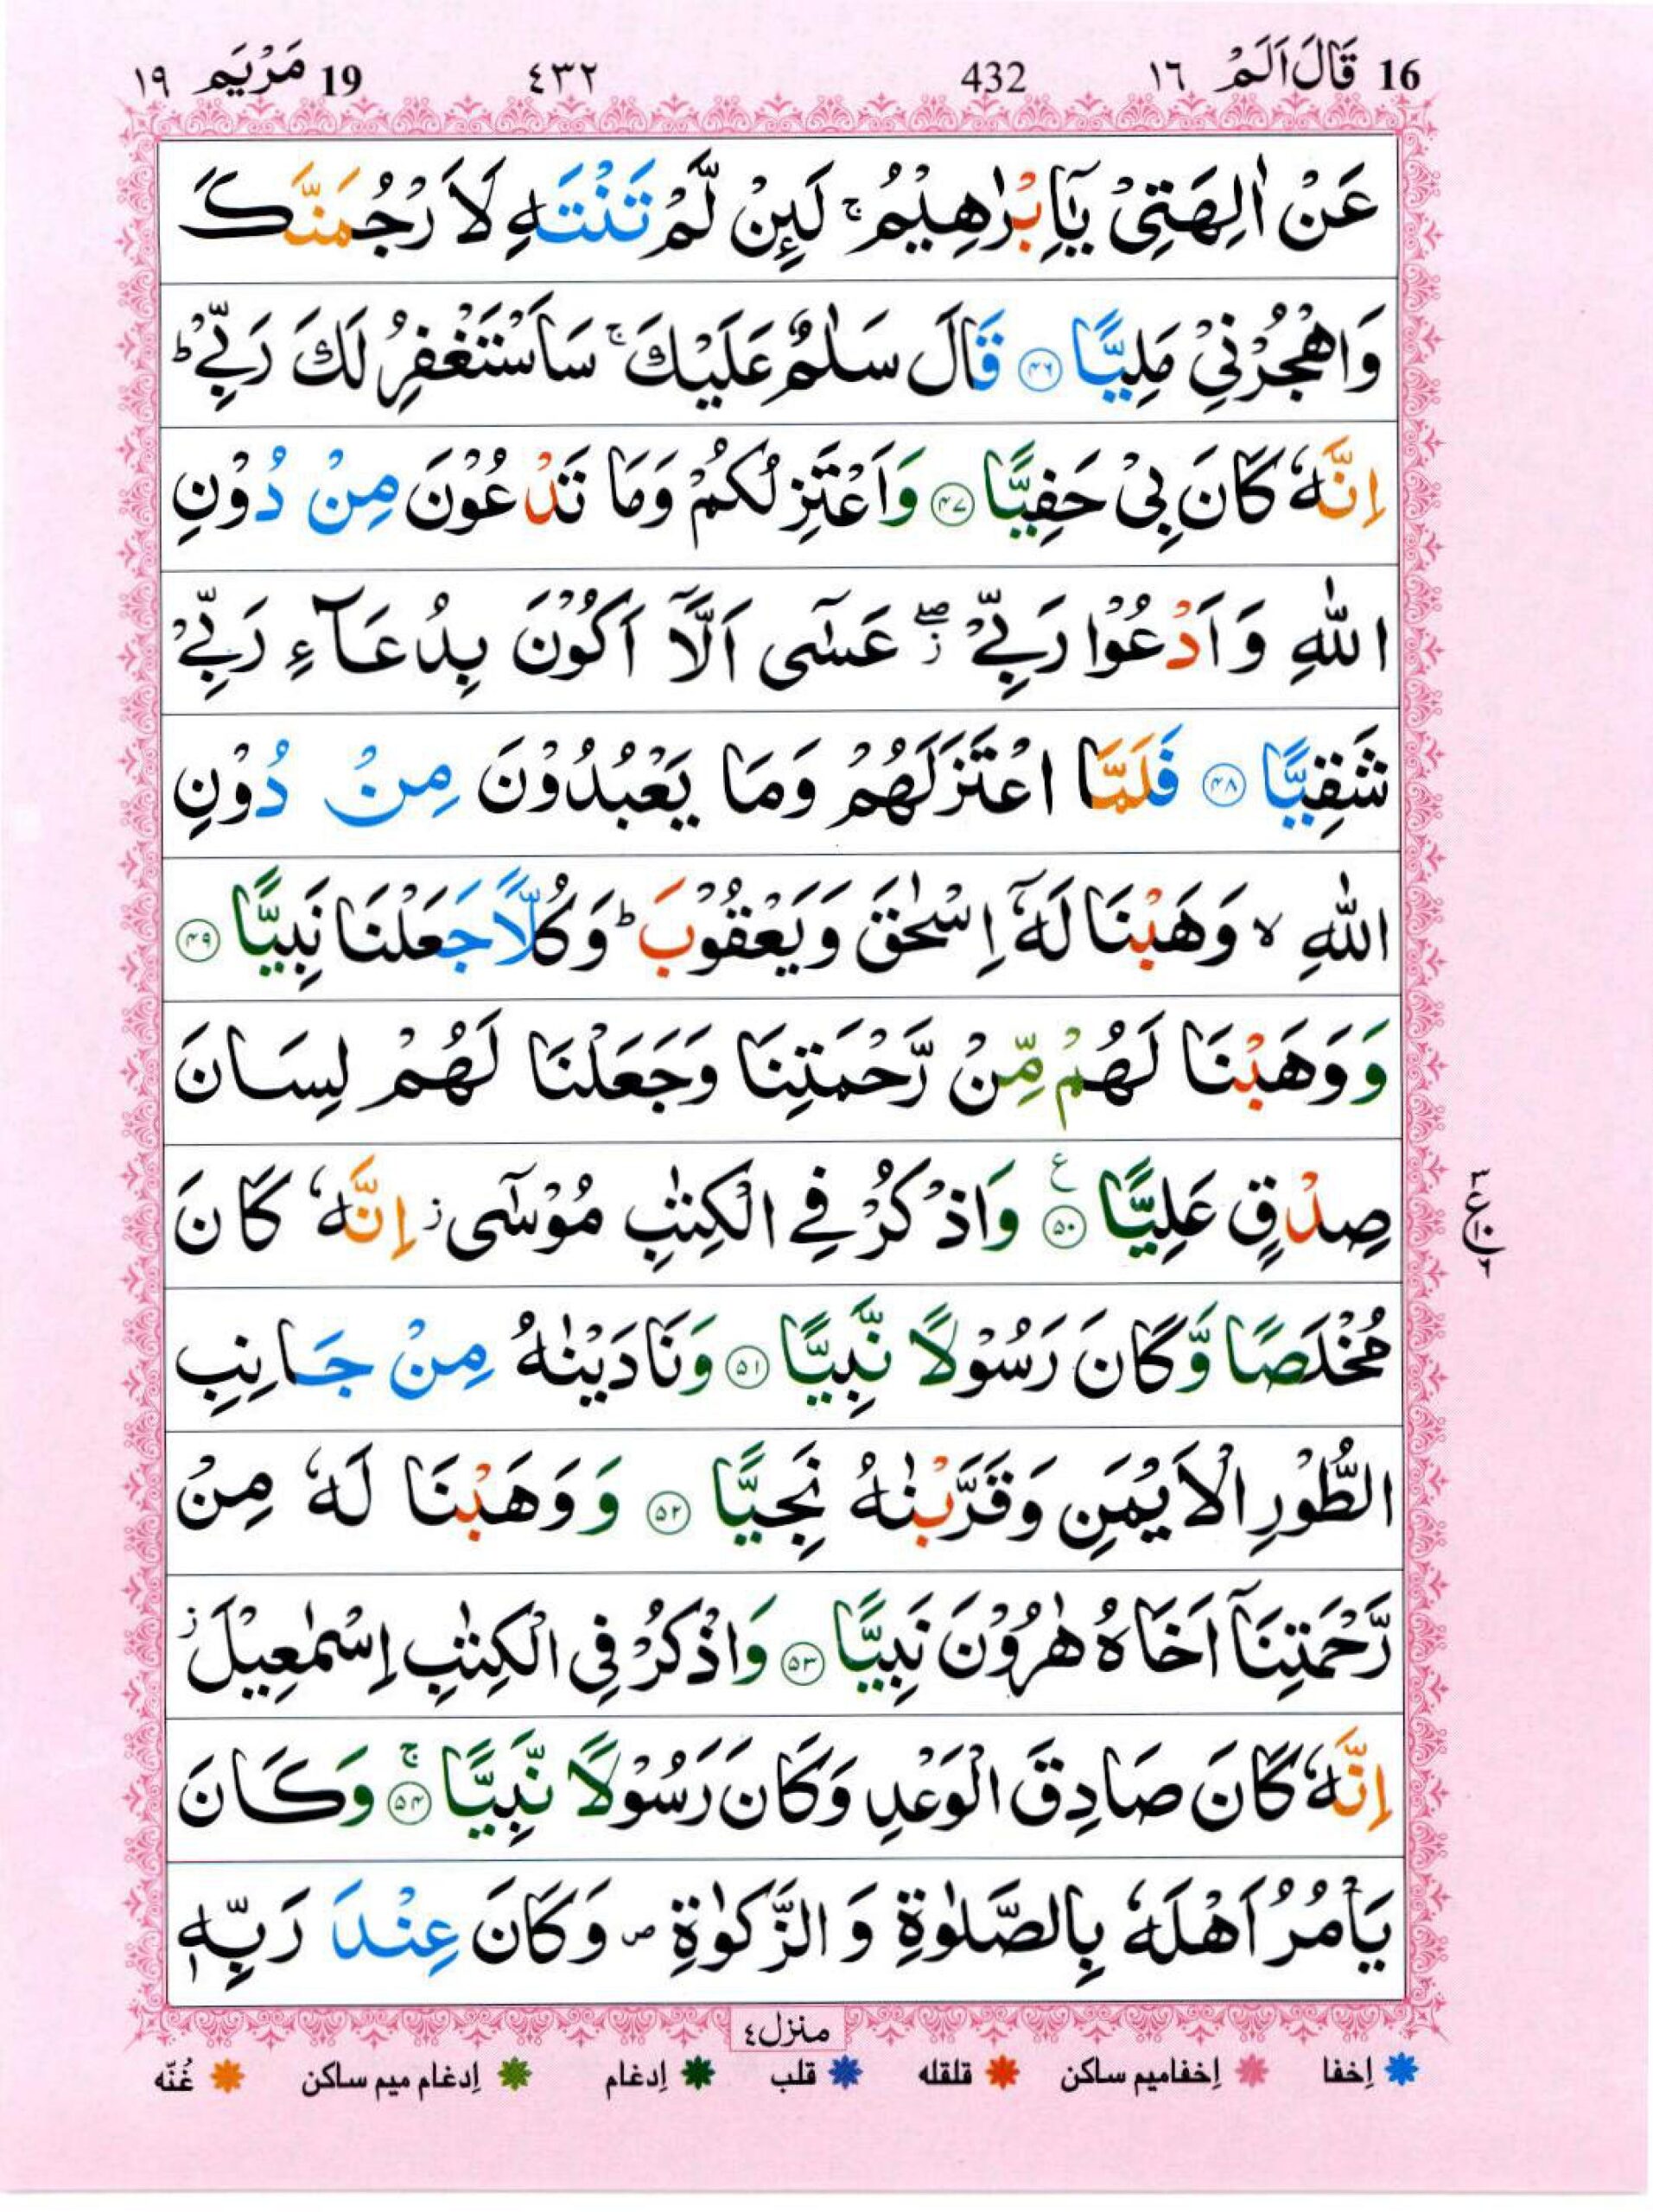 16 قَالَ اَلَمْ ١٦ 432 ٤٣٢ 19 مَرْيَم ١٩
عَنْ اٰلِهَتِیْ یٰۤاِبْرٰهِیْمُ ۚ لَىِٕنْ لَّمْ تَنْتَهِ لَاَرْجُمَنَّكَ
وَاهْجُرْنِیْ مَلِیًّا ﴿۴۶﴾ قَالَ سَلٰمٌ عَلَیْكَ ۚ سَاَسْتَغْفِرُ لَكَ رَبِّیْ ؕ
اِنَّهٗ كَانَ بِیْ حَفِیًّا ﴿۴۷﴾ وَاَعْتَزِلُكُمْ وَمَا تَدْعُوْنَ مِنْ دُوْنِ
اللّٰهِ وَاَدْعُوْا رَبِّیْ ۖؗ عَسٰۤی اَلَّاۤ اَكُوْنَ بِدُعَآءِ رَبِّیْ
شَقِیًّا ﴿۴۸﴾ فَلَمَّا اعْتَزَلَهُمْ وَمَا یَعْبُدُوْنَ مِنْ دُوْنِ
اللّٰهِ ۙ وَهَبْنَا لَهٗۤ اِسْحٰقَ وَیَعْقُوْبَ ؕ وَكُلًّا جَعَلْنَا نَبِیًّا ﴿۴۹﴾
وَوَهَبْنَا لَهُمْ مِّنْ رَّحْمَتِنَا وَجَعَلْنَا لَهُمْ لِسَانَ
صِدْقٍ عَلِیًّا ﴿۵۰﴾ ع وَاذْكُرْ فِی الْكِتٰبِ مُوْسٰۤی ؗ اِنَّهٗ كَانَ
مُخْلَصًا وَّكَانَ رَسُوْلًا نَّبِیًّا ﴿۵۱﴾ وَنَادَیْنٰهُ مِنْ جَانِبِ
الطُّوْرِ الْاَیْمَنِ وَقَرَّبْنٰهُ نَجِیًّا ﴿۵۲﴾ وَوَهَبْنَا لَهٗ مِنْ
رَّحْمَتِنَاۤ اَخَاهُ هٰرُوْنَ نَبِیًّا ﴿۵۳﴾ وَاذْكُرْ فِی الْكِتٰبِ اِسْمٰعِیْلَ ؗ
اِنَّهٗ كَانَ صَادِقَ الْوَعْدِ وَكَانَ رَسُوْلًا نَّبِیًّا ﴿۵۴﴾ ۚ وَكَانَ
یَاْمُرُ اَهْلَهٗ بِالصَّلٰوةِ وَالزَّكٰوةِ ۪ وَكَانَ عِنْدَ رَبِّهٖ
٣ ع ١٠ ٦
منزل٤
إخفا إخفامیم ساکن قلقله قلب إدغام إدغام میم ساکن غُنّه